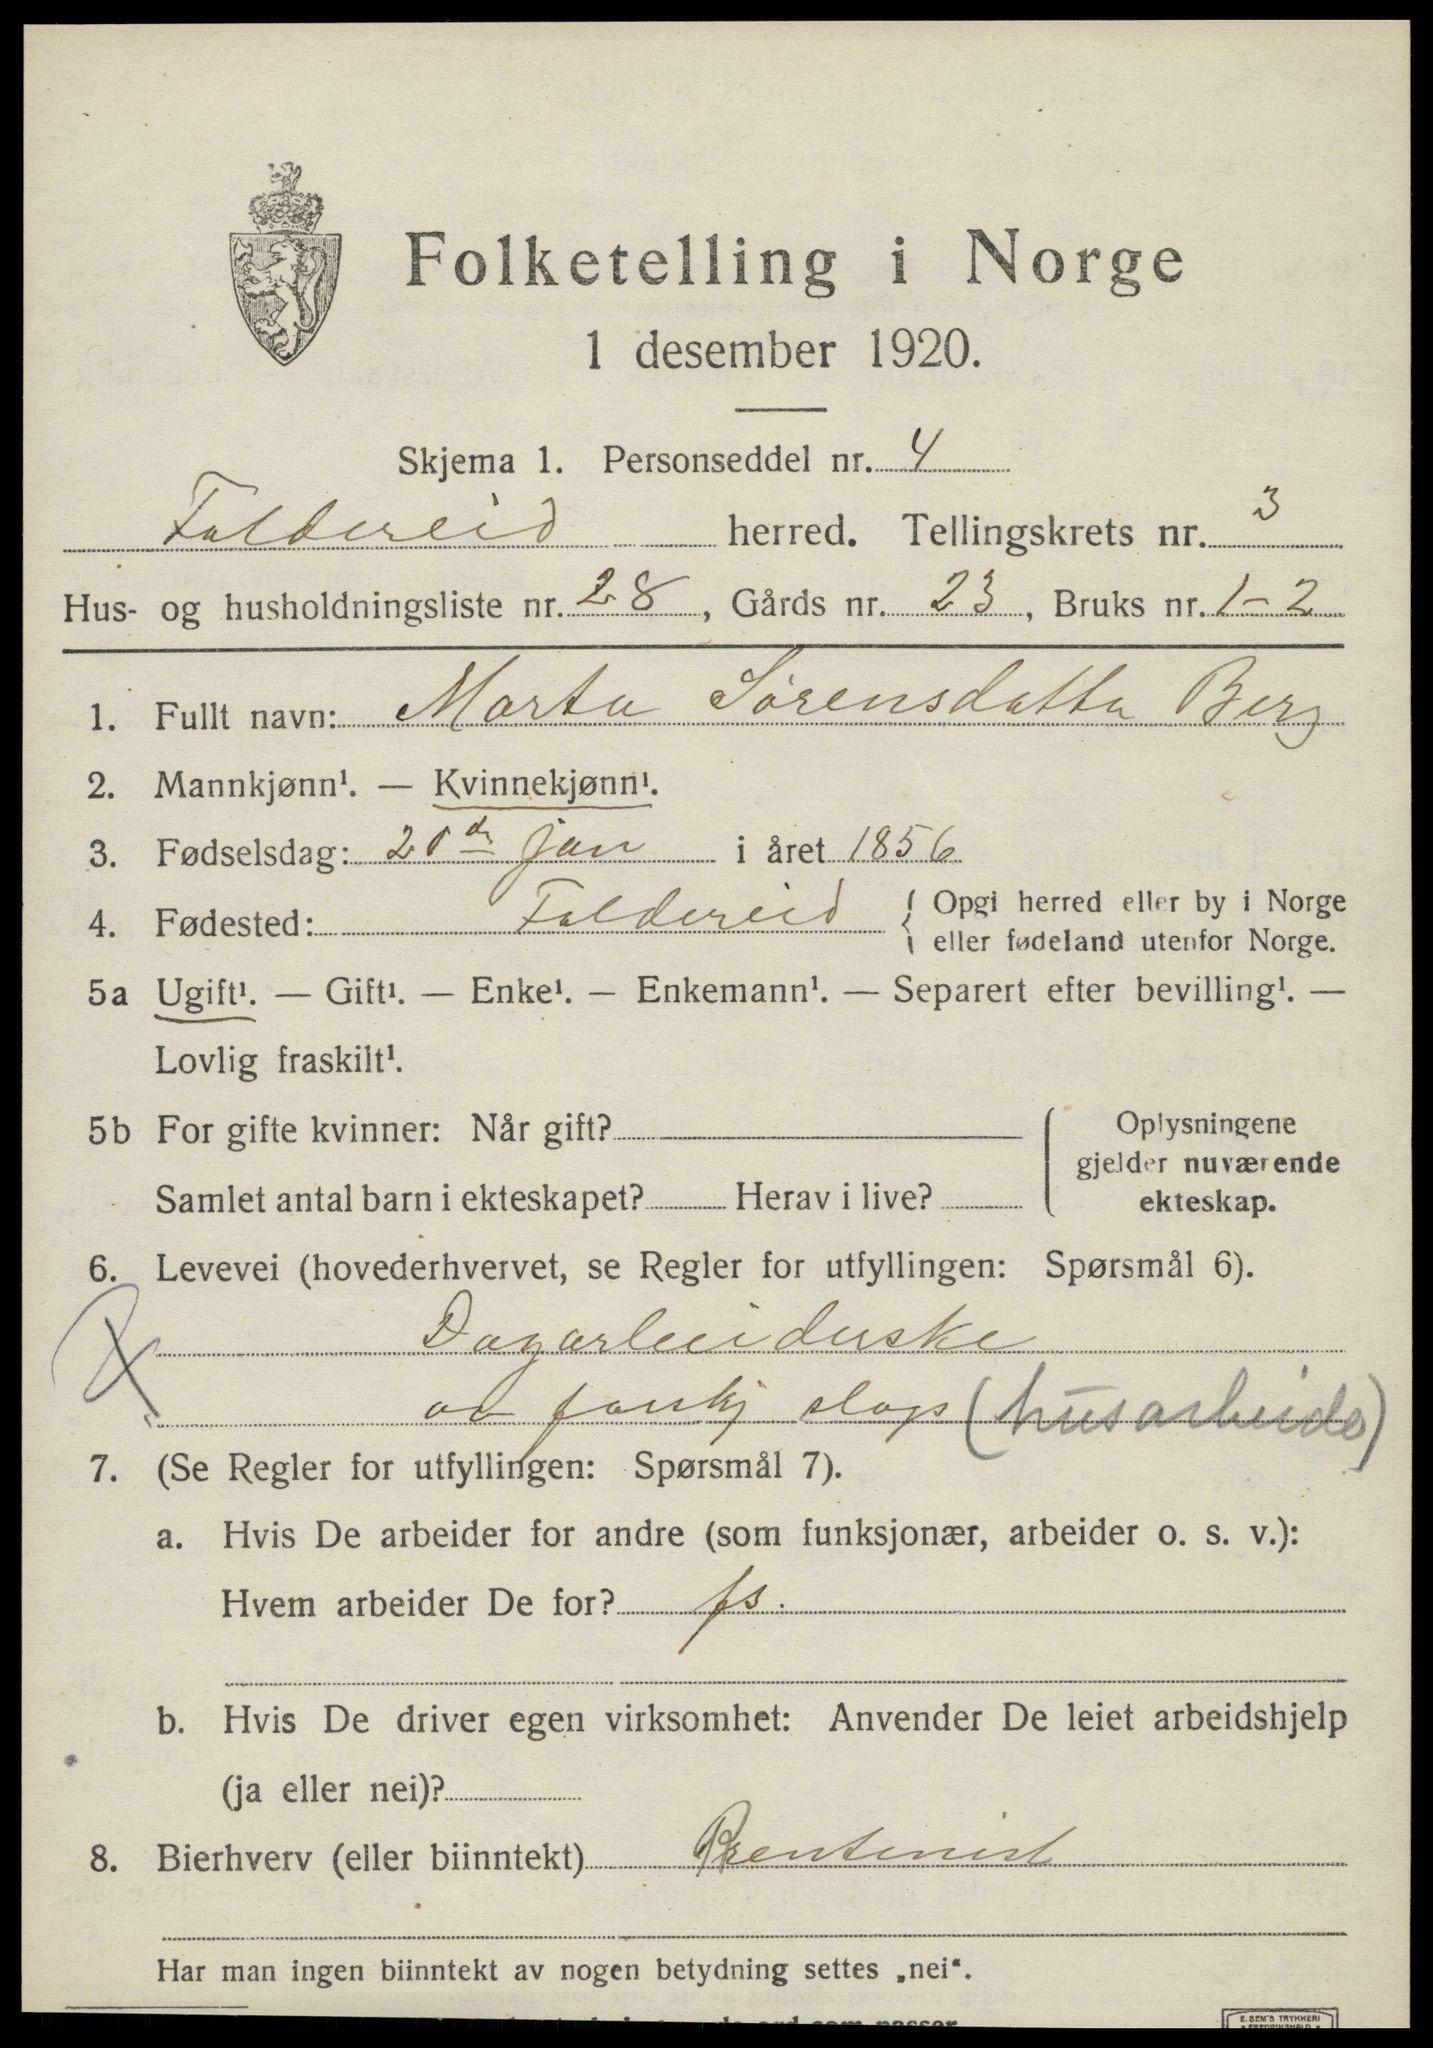 Folketelling i Norge
1 desember 1920.
Skjema 1. Personseddel nr. 4
Foldereid herred. Tellingskrets nr. 3
Hus- og husholdningsliste nr. 28, Gårds nr. 23, Bruks nr. 1-2
1. Fullt navn: Marta Sørensdatta Berg
2. Mannkjønn¹. — Kvinnekjønn¹.
3. Fødselsdag: jan i året 1856
4. Fødested: Foldereid { Opgi herred eller by i Norge
eller fødeland utenfor Norge.
5a Ugift¹. — Gift¹. — Enke¹. — Enkemann¹. — Separert efter bevilling¹. —
Lovlig fraskilt¹.
5b For gifte kvinner: Når gift?
Samlet antal barn i ekteskapet? Herav i live?
Oplysningene
gjelder nuværende
ekteskap.
6. Levevei (hovederhvervet, se Regler for utfyllingen: Spørsmål 6).
Dagarbeiderske
av forskj slags (husarbeide)
7. (Se Regler for utfyllingen: Spørsmål 7).
a. Hvis De arbeider for andre (som funksjonær, arbeider o. s. v.):
Hvem arbeider De for? fs.
b. Hvis De driver egen virksomhet: Anvender De leiet arbeidshjelp
(ja eller nei)?
8. Bierhverv (eller biinntekt)
Har man ingen biinntekt av nogen betydning settes „nei“.
ord som passer
E. SEM'S TRYKKERI
FREDRIKSHALD